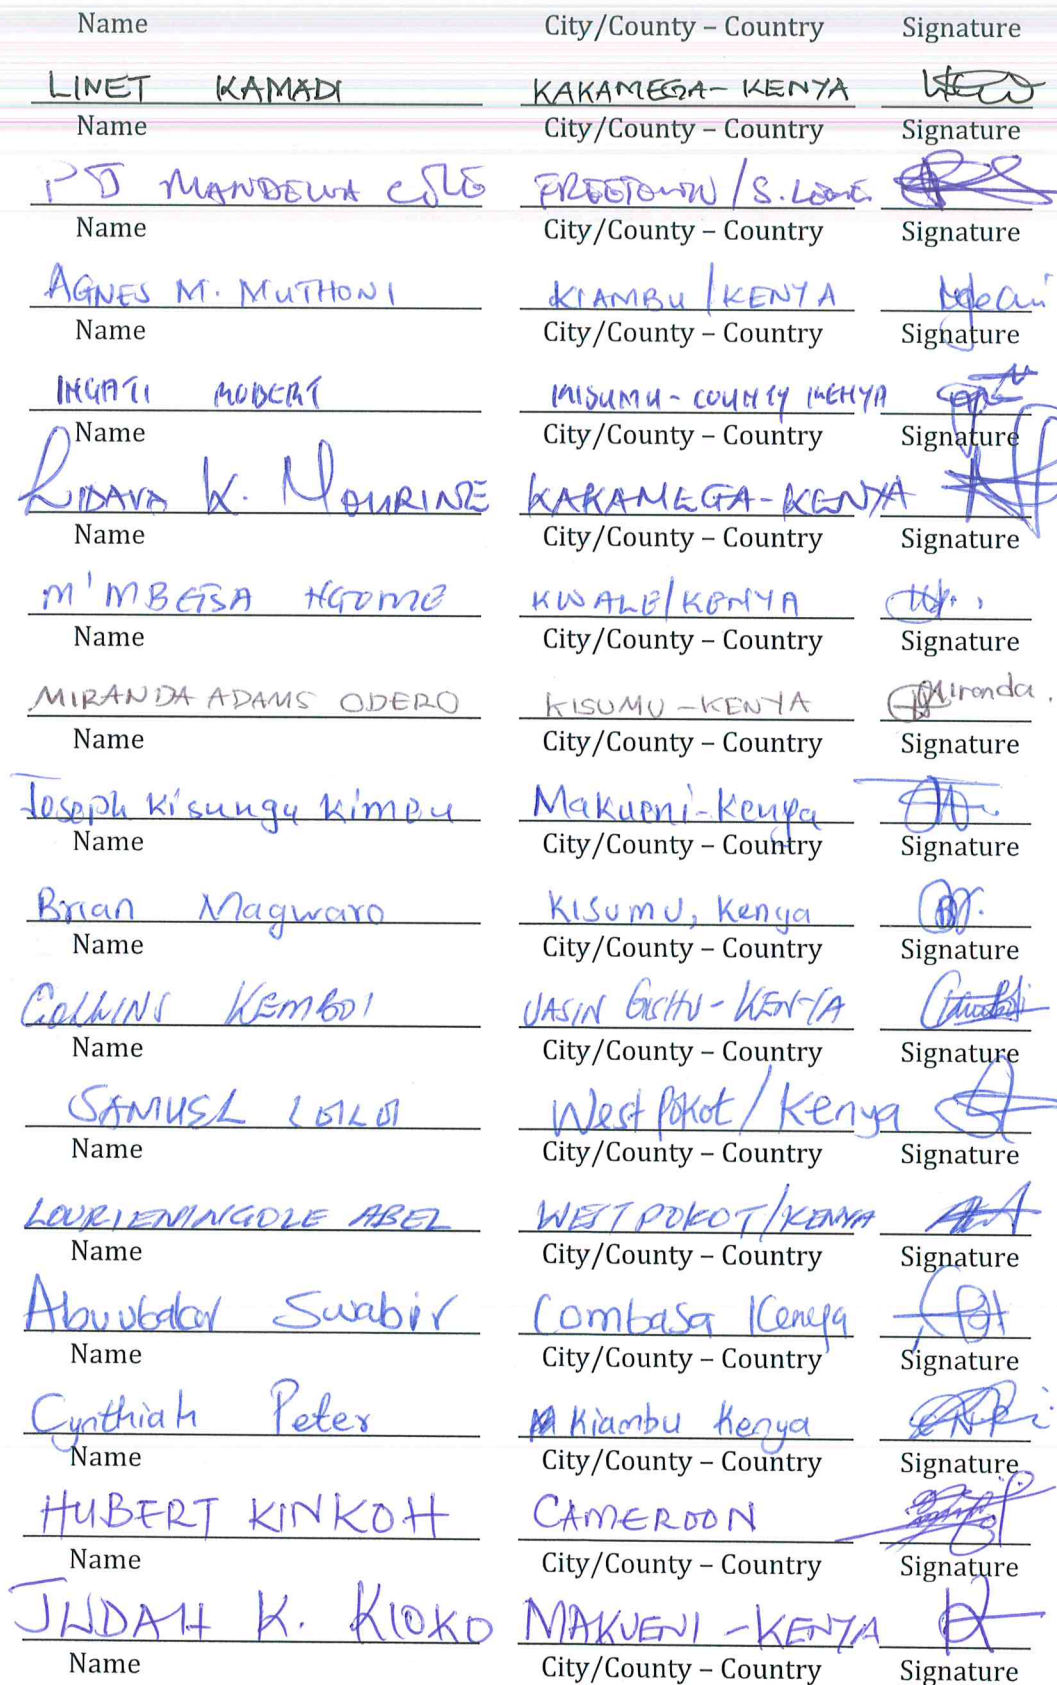 Name City/County – Country Signature
LINET KAMADI KAKAMEGA - KENYA
Name City/County – Country Signature
PJ MANDEWA COLE FREETOWN / S. LEONE
Name City/County – Country Signature
AGNES M. MUTHONI KIAMBU / KENYA
Name City/County – Country Signature
INGATI ROBERT KISUMU - COUNTY KENYA
Name City/County – Country Signature
LIDAVA K. MOURINE KAKAMEGA - KENYA
Name City/County – Country Signature
M'MBETSA NGOME KWALE/KENYA
Name City/County – Country Signature
MIRANDA ADAMS ODERO KISUMU - KENYA Miranda.
Name City/County – Country Signature
Joseph Kisungu Kimeu Makueni-Kenya
Name City/County – Country Signature
Brian Magwaro KISUMU, Kenya
Name City/County – Country Signature
COLLINS KEMBOI UASIN GISHU - KENYA
Name City/County – Country Signature
SAMUEL West Pokot / Kenya
Name City/County – Country Signature
LOURIENINGOLE ABEL WEST POKOT/KENYA
Name City/County – Country Signature
Abuubakar Swabir Combasa Kenya
Name City/County – Country Signature
Cynthiah Peter Kiambu Kenya
Name City/County – Country Signature
HUBERT KINKOH CAMEROON
Name City/County – Country Signature
JUDAH K. KIOKO MAKUENI - KENYA
Name City/County – Country Signature